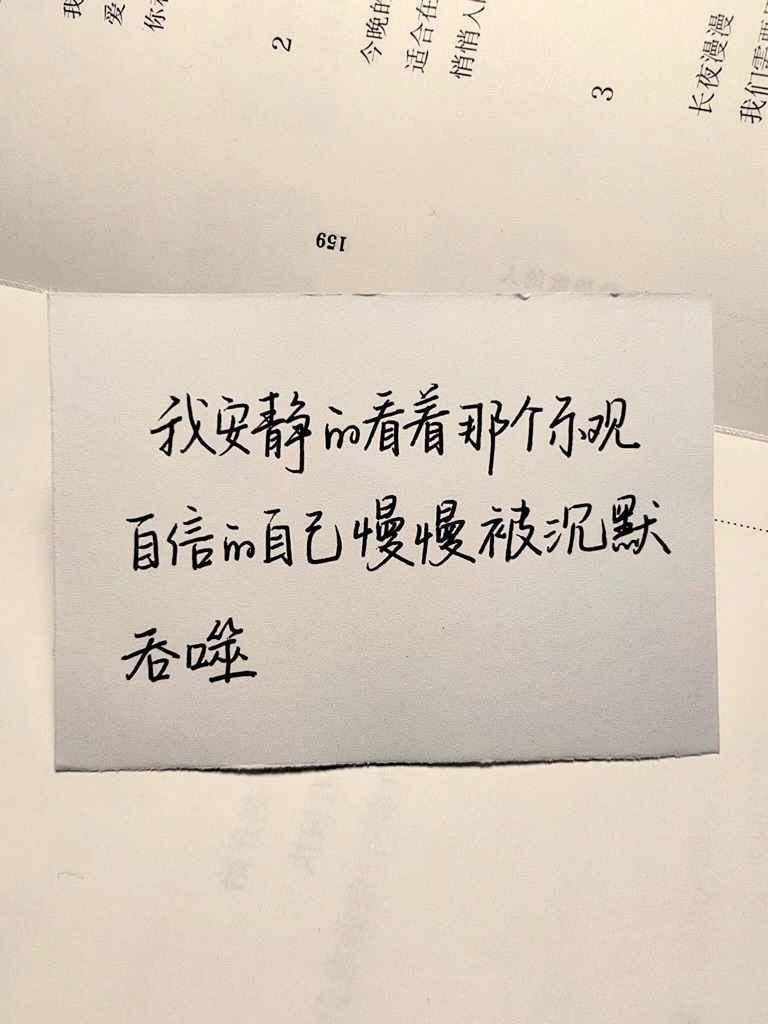 我
爱
你
2
今晚的
适合在
悄悄人
3
长夜漫漫
我们需要
159
我安静的看着那个乐观
自信的自己慢慢被沉默
吞噬